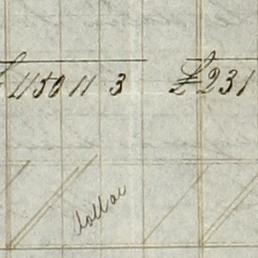 £ 450 11 3 £ 231
dollar